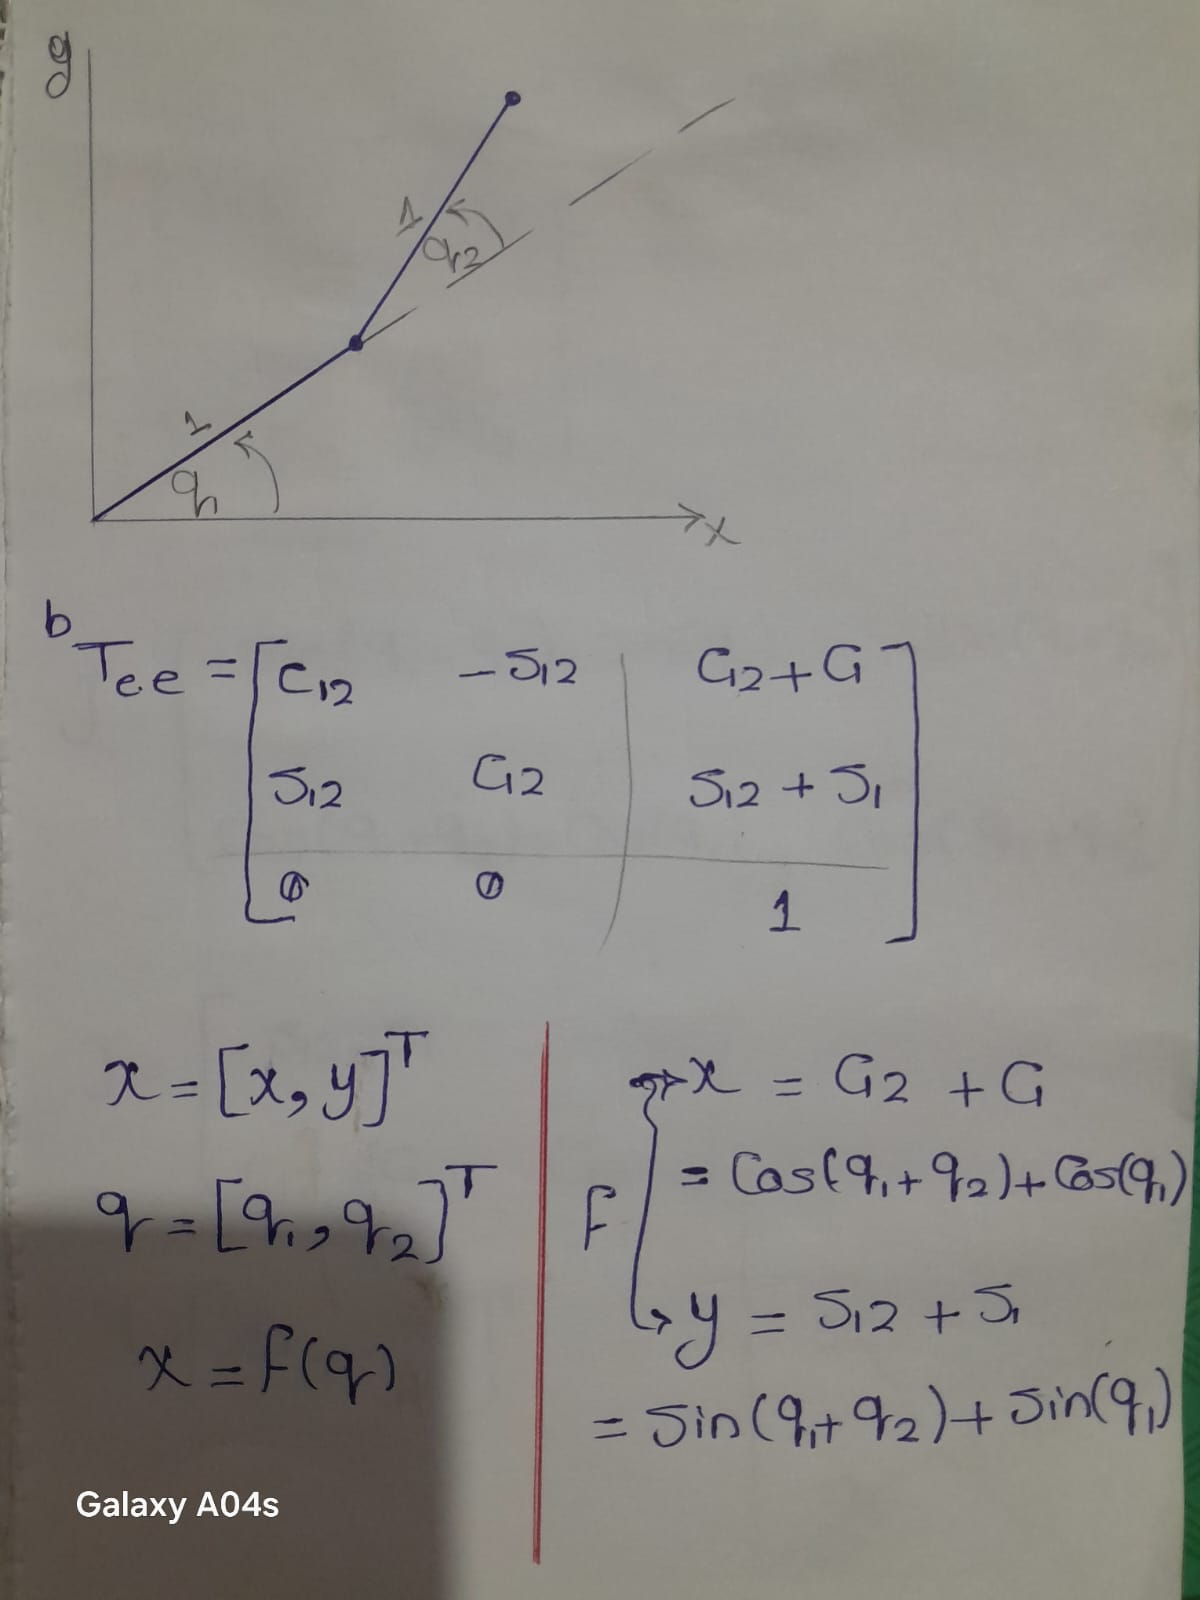 y
1
q2
1
q1
x
b
Tee = [ C12 -S12 C12 + C1
S12 C12 S12 + S1
0 0 1 ]
x = [x, y]^T
q = [q1, q2]^T
x = f(q)
f
x = C12 + C1
= Cos(q1 + q2) + Cos(q1)
y = S12 + S1
= Sin(q1 + q2) + Sin(q1)
Galaxy A04s